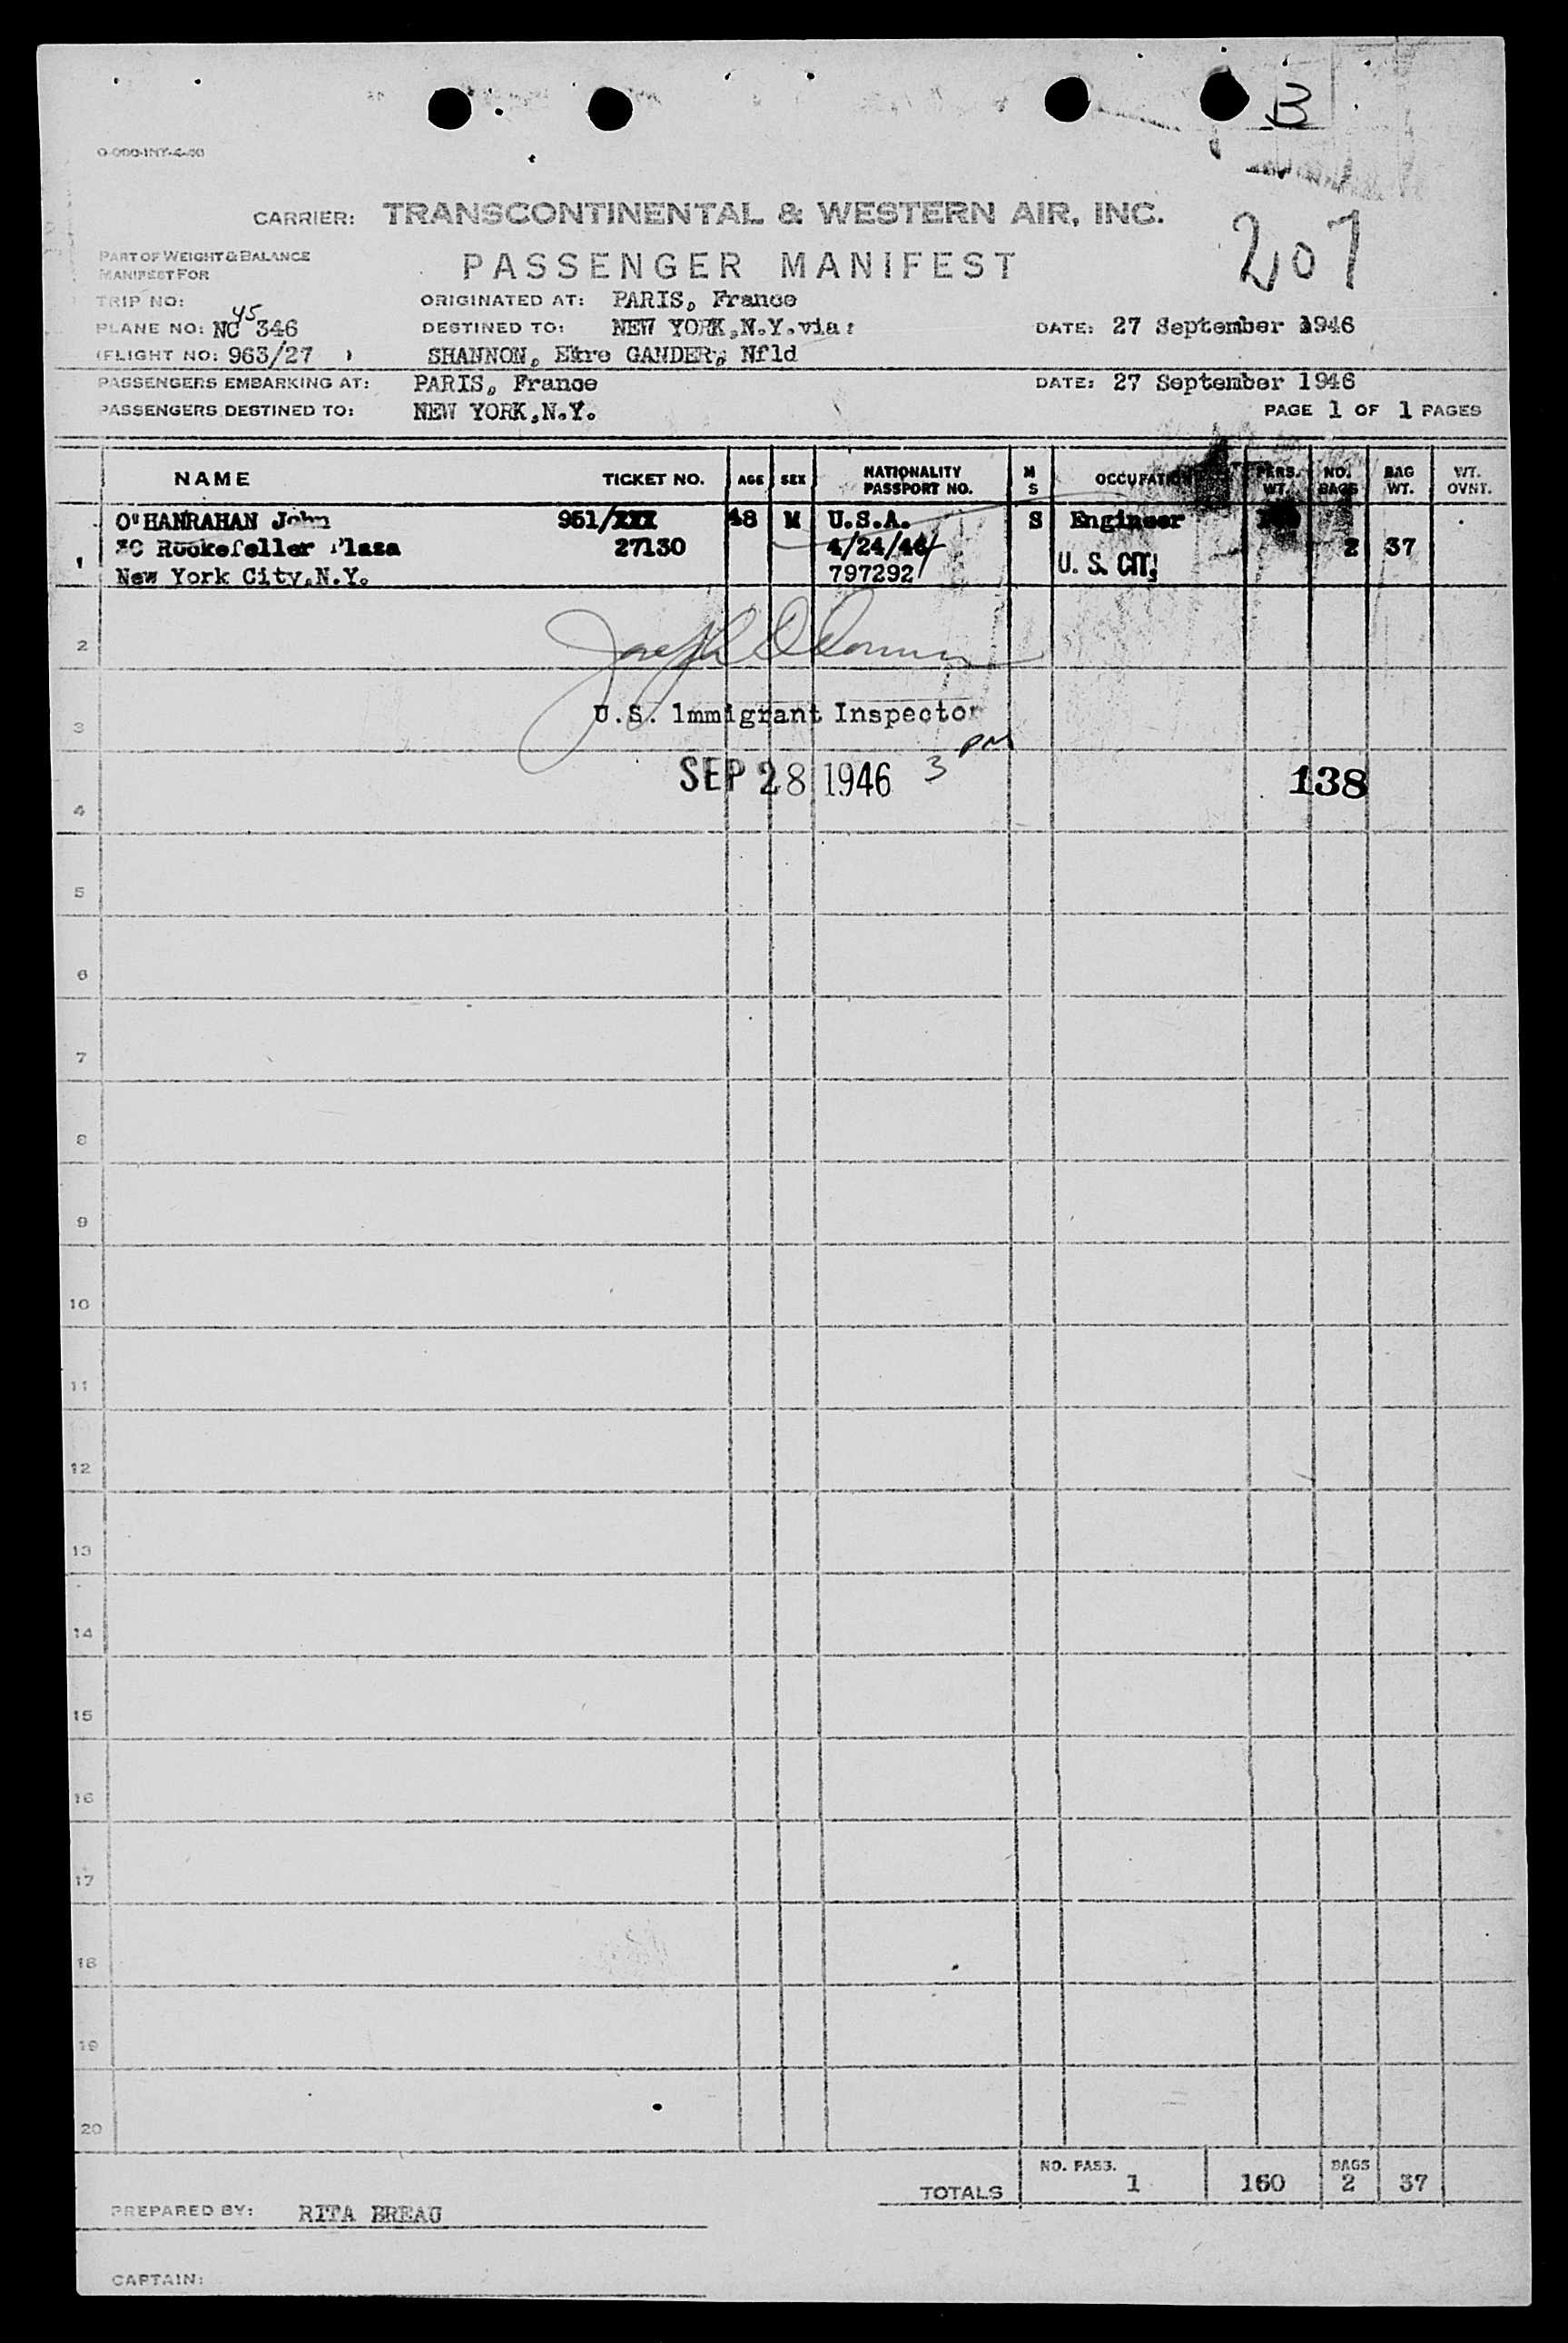 B
CARRIER: TRANSCONTINENTAL & WESTERN AIR, INC.
207
PART OF WEIGHT & BALANCE
MANIFEST FOR
PASSENGER MANIFEST
TRIP NO: ORIGINATED AT: PARIS, France
45
PLANE NO: NC 346 DESTINED TO: NEW YORK,N.Y.via: DATE: 27 September 1946
(FLIGHT NO: 963/27 ) SHANNON, Eire GANDER, Nfld
PASSENGERS EMBARKING AT: PARIS, France DATE: 27 September 1946
PASSENGERS DESTINED TO: NEW YORK,N.Y. PAGE 1 OF 1 PAGES
NAME TICKET NO. AGE SEX NATIONALITY PASSPORT NO. M S OCCUPATION PERS. WT. NO. BAGS BAG WT. WT. OVNT.
O'HANRAHAN John 951/XXX 48 M U.S.A. S Engineer
1 30 Rockefeller Plaza 27130 4/24/46 2 37
New York City,N.Y. 797292 U. S. CIT.
2
U.S. Immigrant Inspector
3
SEP 28 1946 3 PM 138
4
5
6
7
8
9
10
11
12
13
14
15
16
17
18
19
20
TOTALS NO. PASS. 1 160 BAGS 2 37
PREPARED BY: RITA BREAU
CAPTAIN: